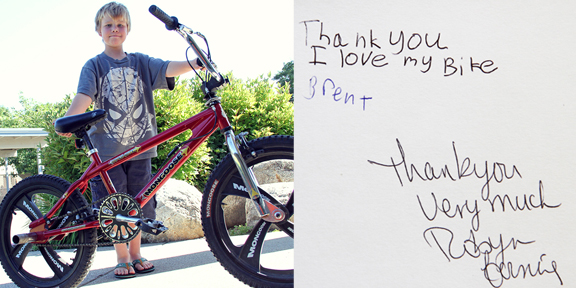 MONGOOSE
MONGOOSE
Thank you
I love my Bike
Brent
Thankyou
Very much
Robyn